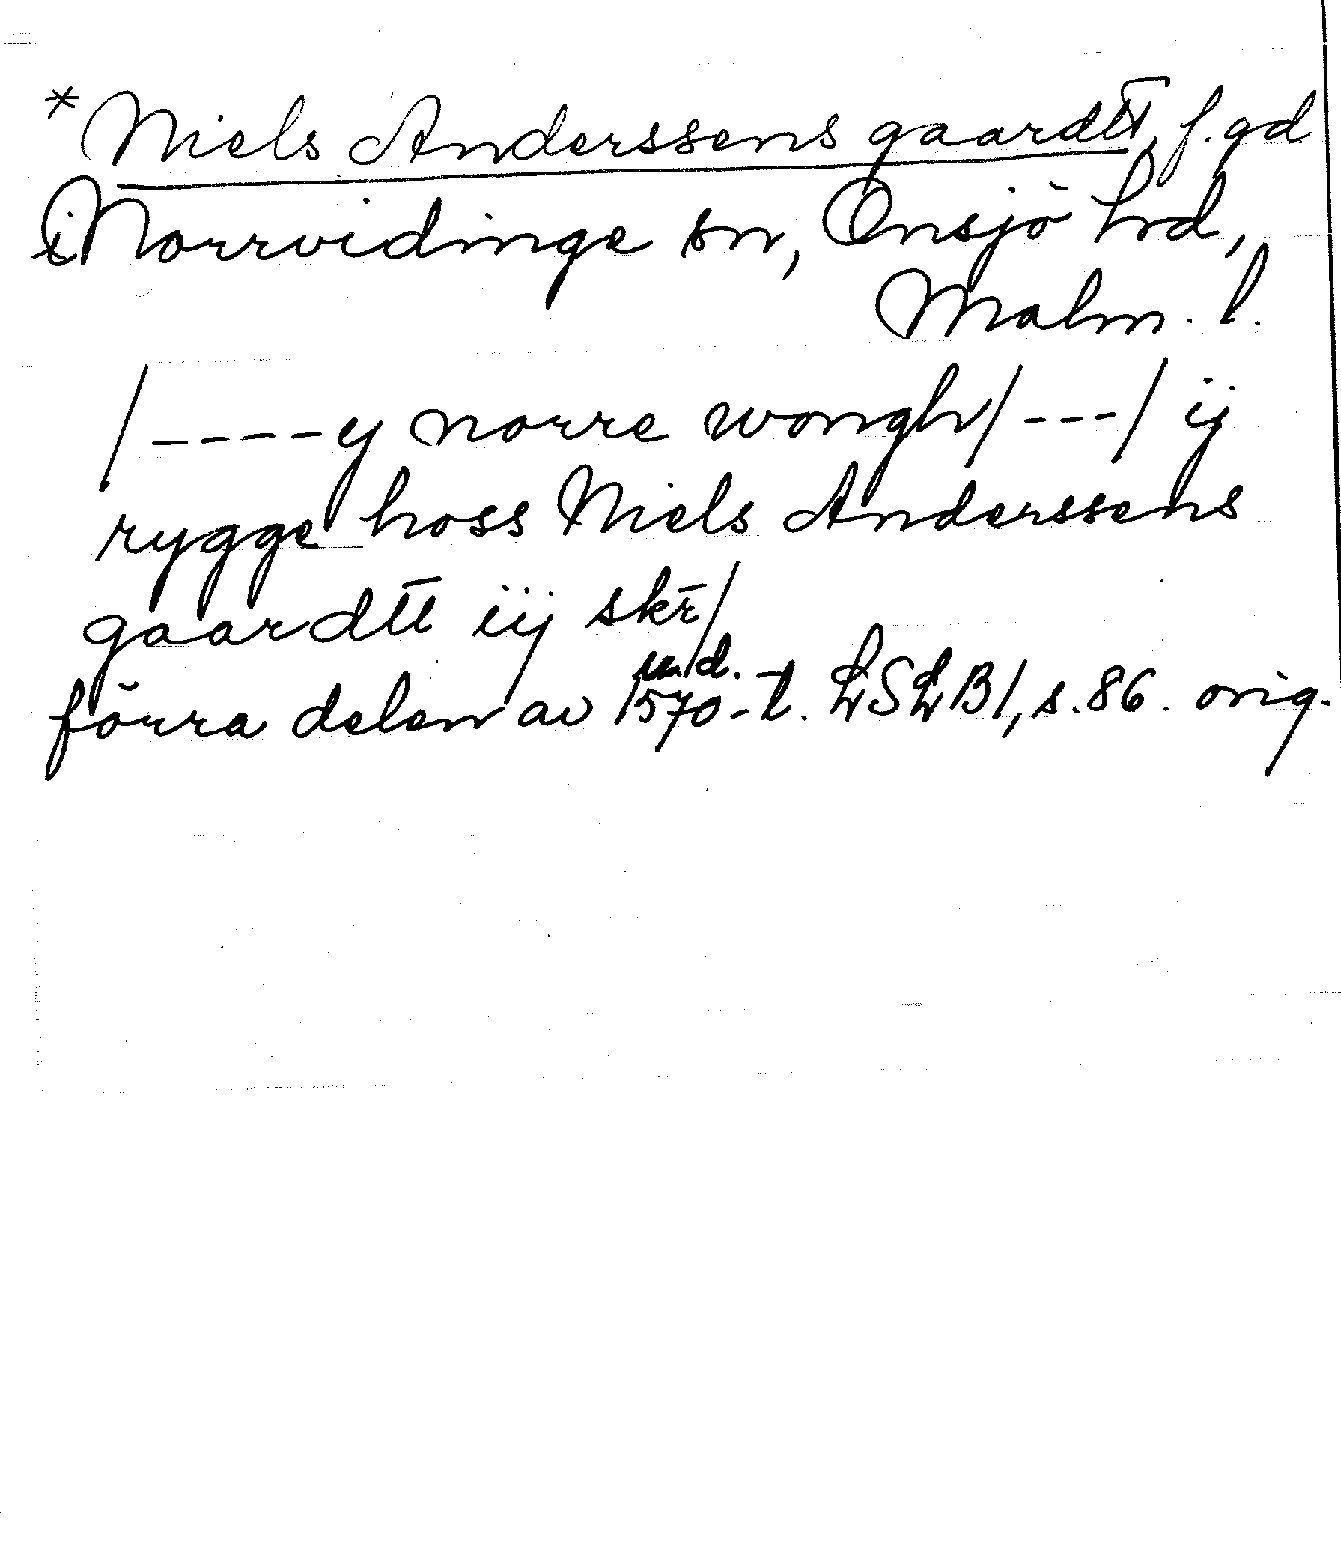 *Niels Anderssens gaardtt, f. gd
i Norrvidinge sn, Onsjö hd,
Malm. l.
/----y norre wongh/---/ ij
rygge hoss Niels Anderssens
gaardtt iij skr/
u.d.
förra delen av 1570-t. LSLB1, s. 86. orig.